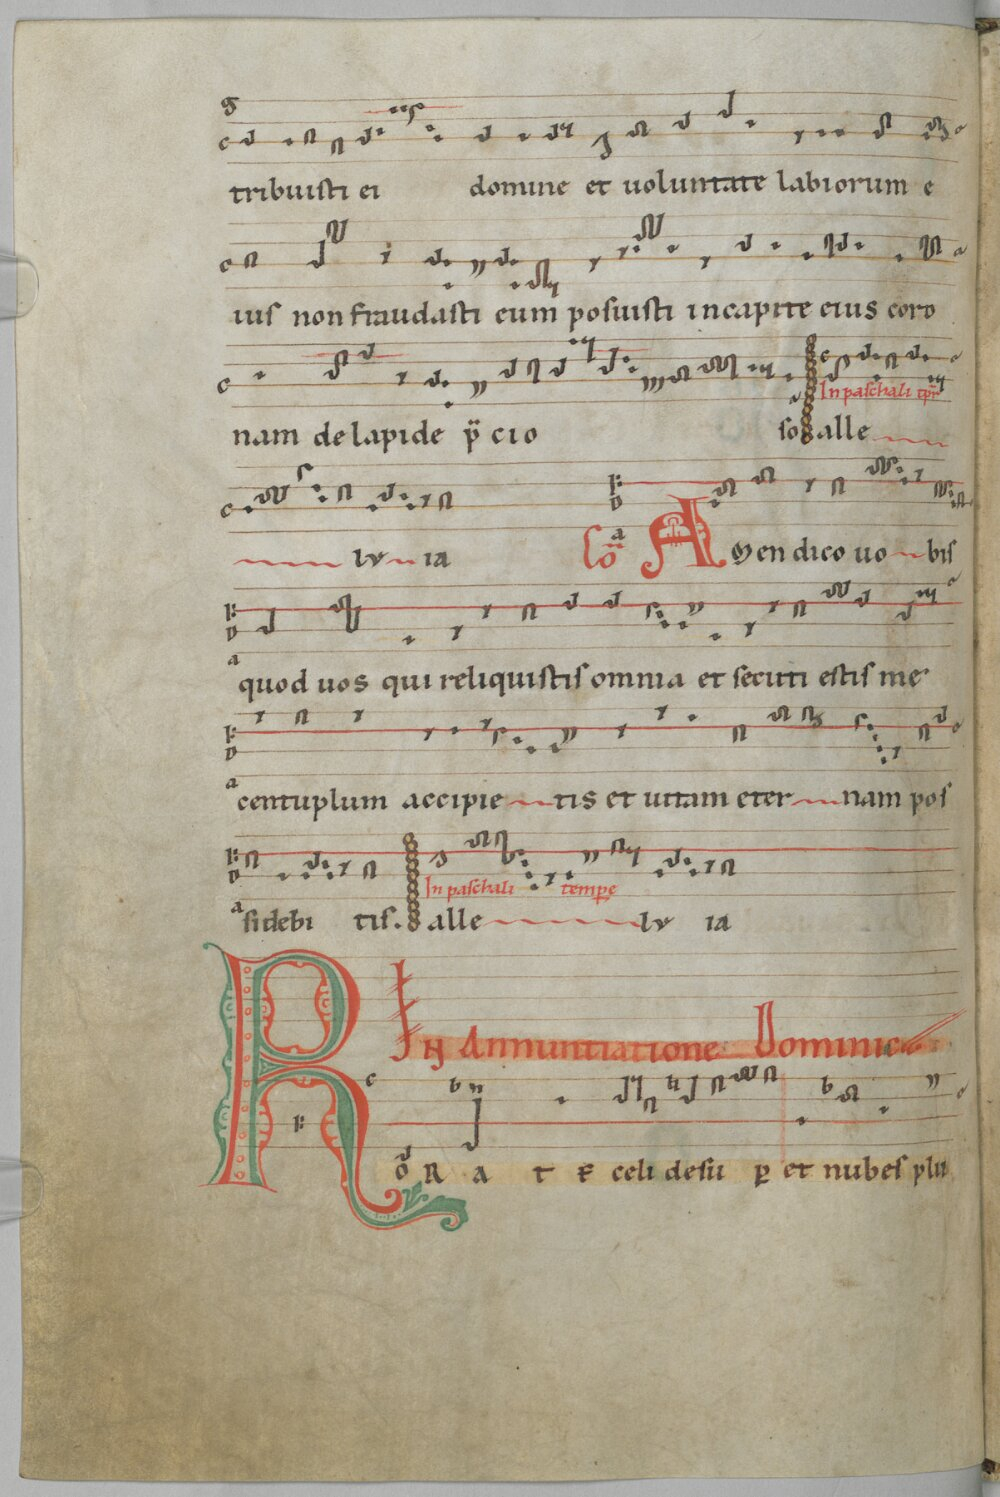 tribuisti ei domine et uoluntate labiorum e
ius non fraudasti eum posuisti in capite eius coro
nam de lapide p̄cioso alle
In paschali tp̄r
lv ia Cō Amen dico uobis
quod uos qui reliquistis omnia et secuti estis me
centuplum accipietis et uitam eternam pos
sidebitis. alle lv ia
In paschali tempe
In Annuntiatione Dominica
RORATE celi desup et nubes plu